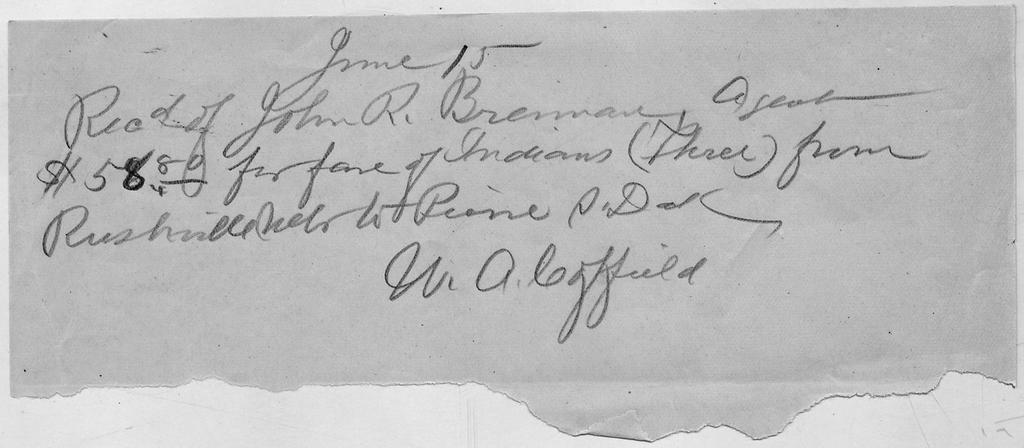 June 15
Recd of John R. Brennan, Agent
$58.80 for fare of Indians (Three) from
Rushville Nebr to Pierre S. Dak
W. A. Coffield